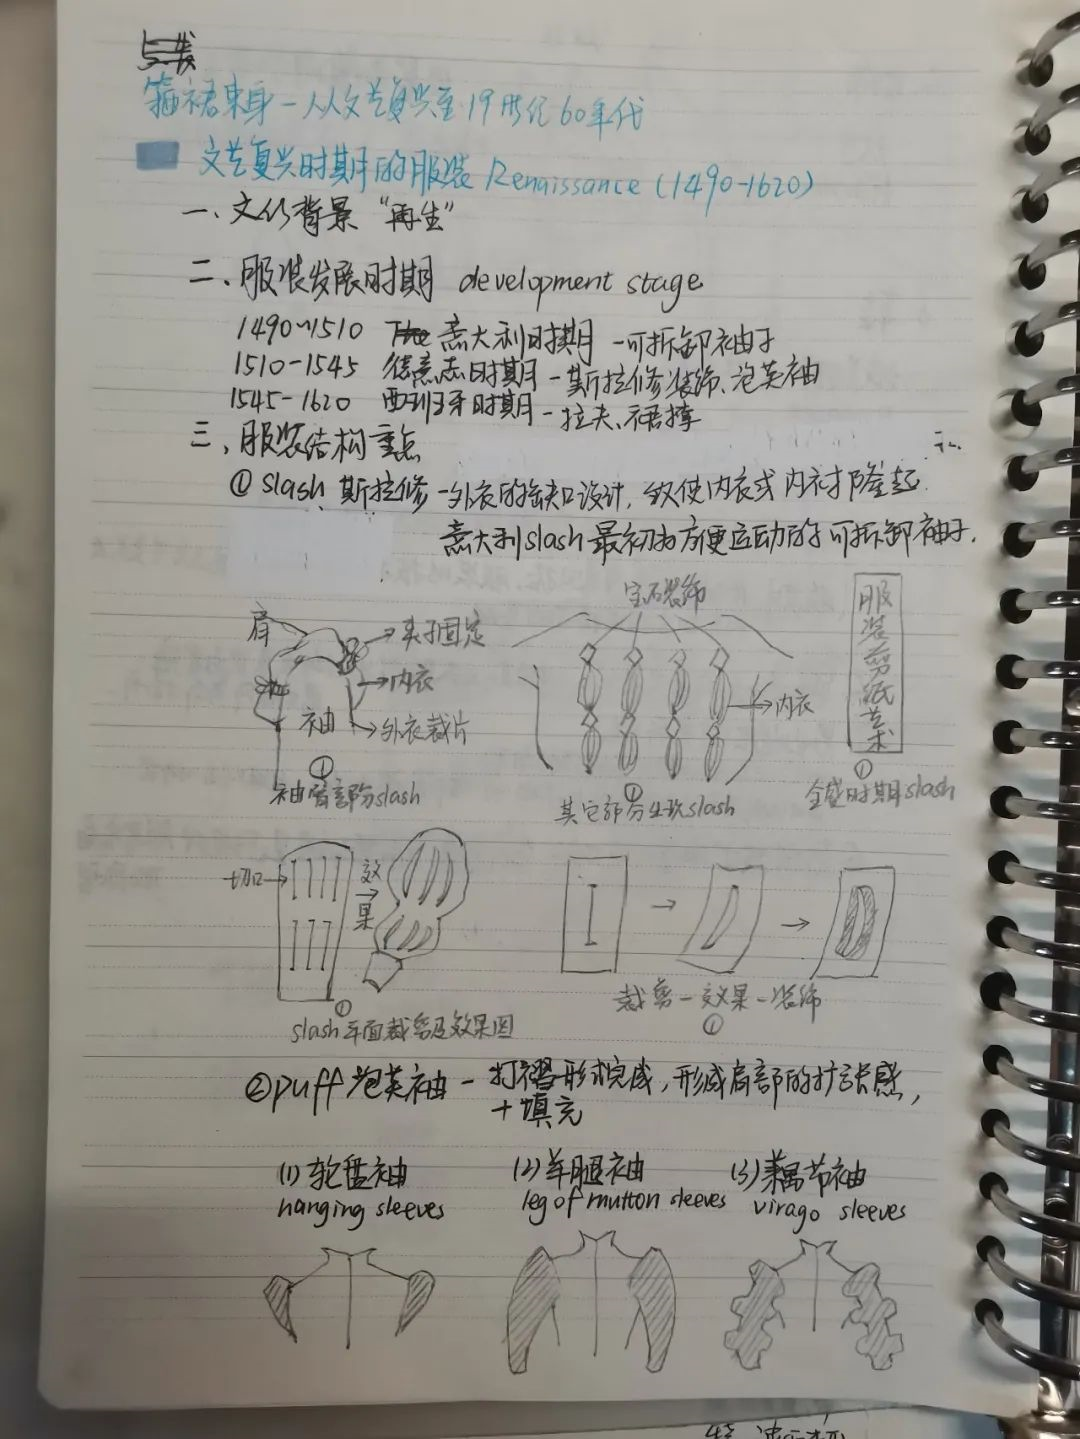 箍裙束身-人从文艺复兴至19世纪60年代
文艺复兴时期的服装 Renaissance (1490-1620)
一、文化背景 "再生"
二、服装发展时期 development stage
1490~1510 The 意大利时期-可拆卸袖子
1510-1545 德意志时期-斯拉修装饰、泡芙袖
1545-1620 西班牙时期-拉夫、裙撑
三、服装结构重点
① slash 斯拉修-外衣的缺口设计,致使内衣或内衬隆起.
意大利slash最初为方便运动的可拆卸袖子.
肩
夹子固定
内衣
袖
外衣裁片
①
袖窿部分slash
宝石装饰
内衣
①
其它部分出现slash
服装剪纸艺术
①
全盛时期slash
切口
效果
①
slash平面裁剪及效果图
裁剪-效果-装饰
①
②puff泡芙袖-打褶形式完成,形成肩部的扩张感,
+填充
(1)轮盘袖
hanging sleeves
(2)羊腿袖
leg of mutton sleeves
(3)藕节袖
virago sleeves